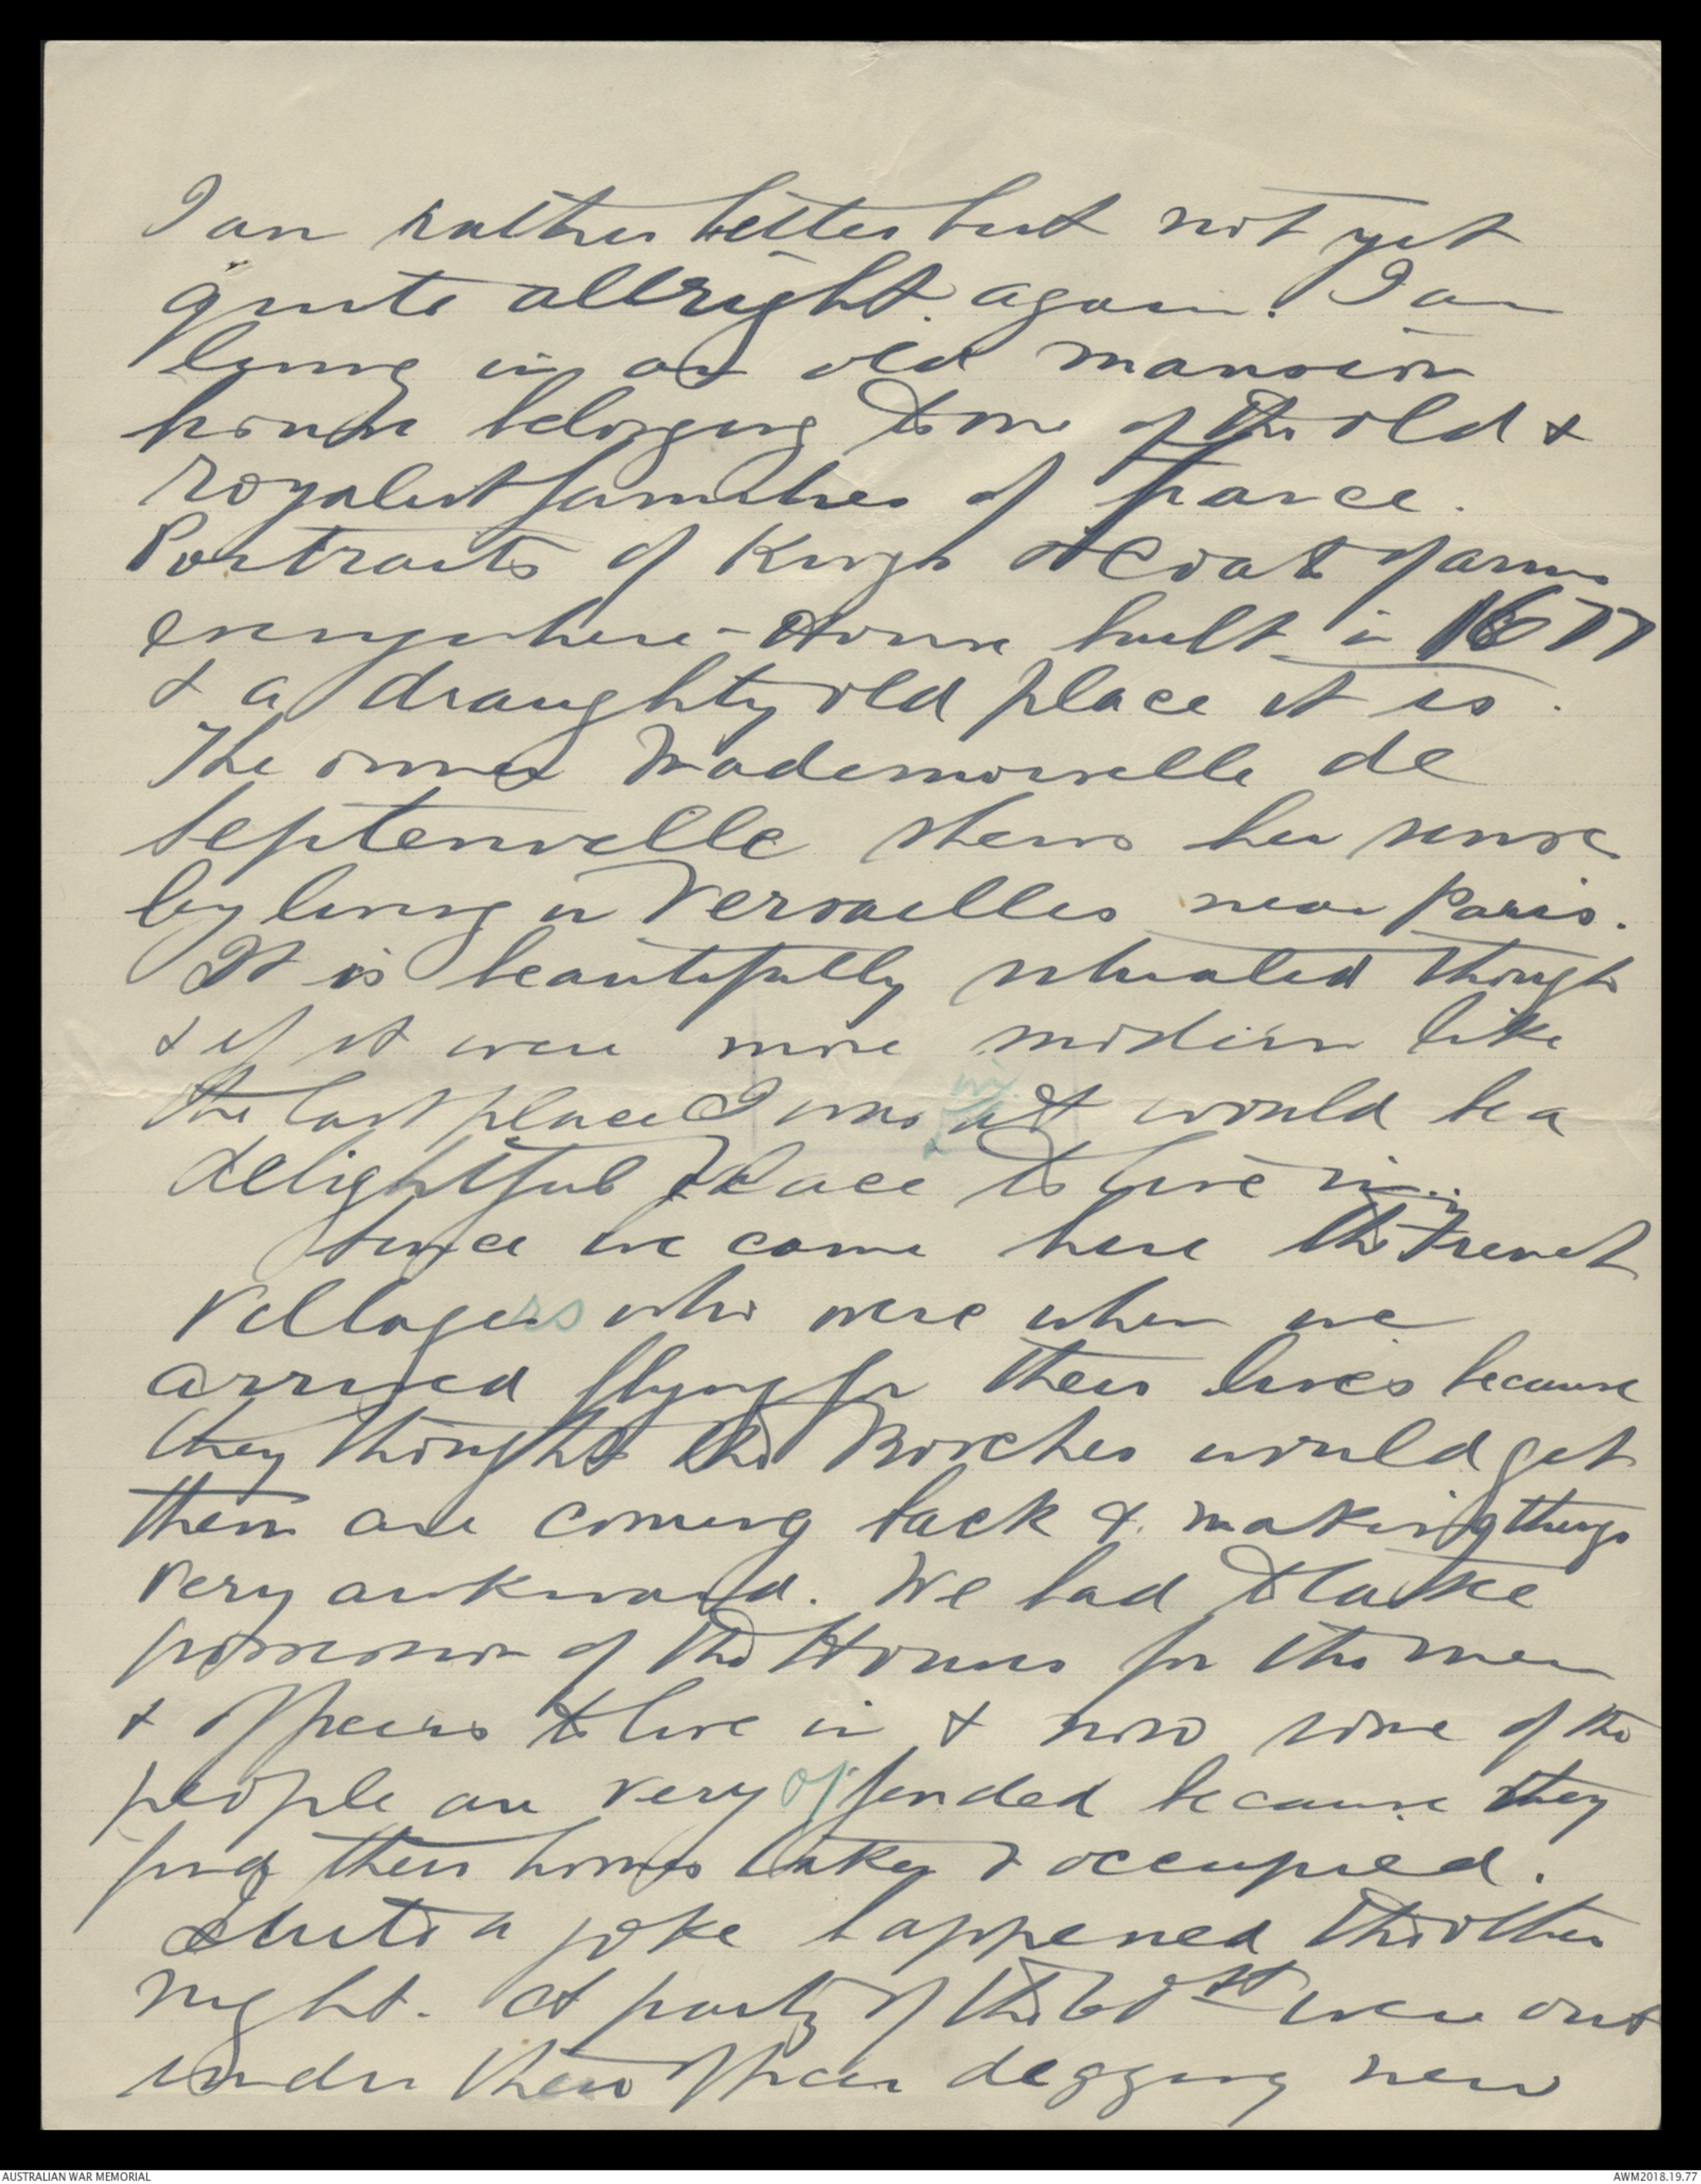 I am rather better but not yet
quite allright. again. I am
living in an old mansion
house belonging to one of the old &
royalist families of France.
Portraits of Kings & Coat of arms
everywhere - House built in 1677
& a draughty old place it is.
The owner Mademoiselle de
Septenville shews her sense
by living in Versailles near Paris.
It is beautifully situated though
& if it were more modern like
the last place I was in it would be a
delightful place to live in.
Since we came here the French
Villagers who were when we
arrived flying for their lives because
they thought the Bosches would get
them are coming back & making things
very awkward. We had to take
possession of the Houses for the men
& officers to live in & now some of the
people are very offended because they
find their homes taken & occupied.
Quite a joke happened the other
night. A party of the were out
under their officer digging new
AUSTRALIAN WAR MEMORIAL
AWM2018.19.77